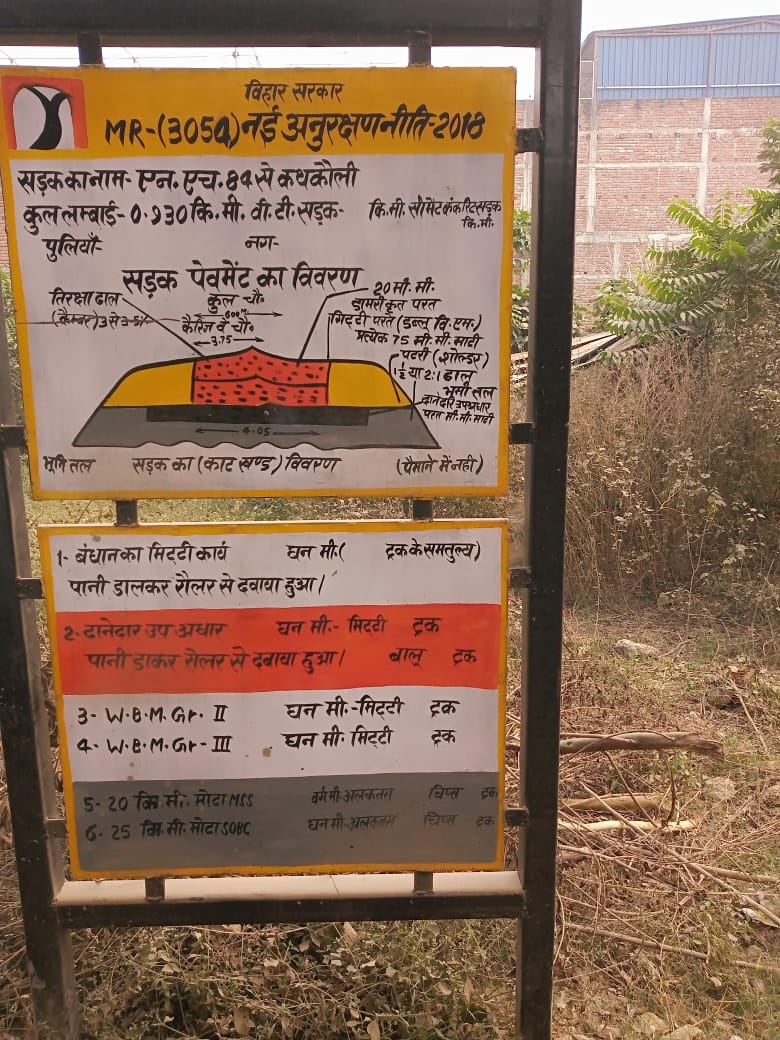 बिहार सरकार
MR-(3054) नई अनुरक्षण नीति-2018
सड़क का नाम- एन. एच. 84 से कधकौली
कुल लम्बाई- 0.930 कि.मी. वी.टी. सड़क- कि.मी. सीमेंट कंकरिट सड़क
कि.मी.
पुलियाँ- नग-
सड़क पेवमेंट का विवरण
तिरक्षा ढाल
(कैम्बर) 3 से 3.5%
कुल चौ.
कैरेज वे चौ.
3.75
20 मी. मी.
डामरीकृत परत
गिटटी परत (डब्लू. बि. एम.)
प्रत्येक 75 मी. मी. माटी
पटरी (शोल्डर)
1½ या 2:1 ढालू
भूमी तल
दानेदार उपअधार
परत मी. मी. माटी
4.05
भूमि तल सड़क का (काट खण्ड) विवरण (पैमाने में नही)
1- बंधान का मिटटी कार्य घन मी.( ट्रक के समतुल्य)
पानी डालकर रोलर से दवाया हुआ।
2- दानेदार उप अधार घन मी.- मिटटी ट्रक
पानी डाकर रोलर से दवाया हुआ। बालू ट्रक
3- W.B.M. Gr. II घन मी.-मिटटी ट्रक
4- W.B.M. Gr- III घन मी. मिटटी ट्रक
5- 20 कि.मी. मोटा MSS वर्ग मी. अलकतरा चिप्स ट्रक
6- 25 कि.मी. मोटा SDBC घन मी. अलकतरा चिप्स ट्रक